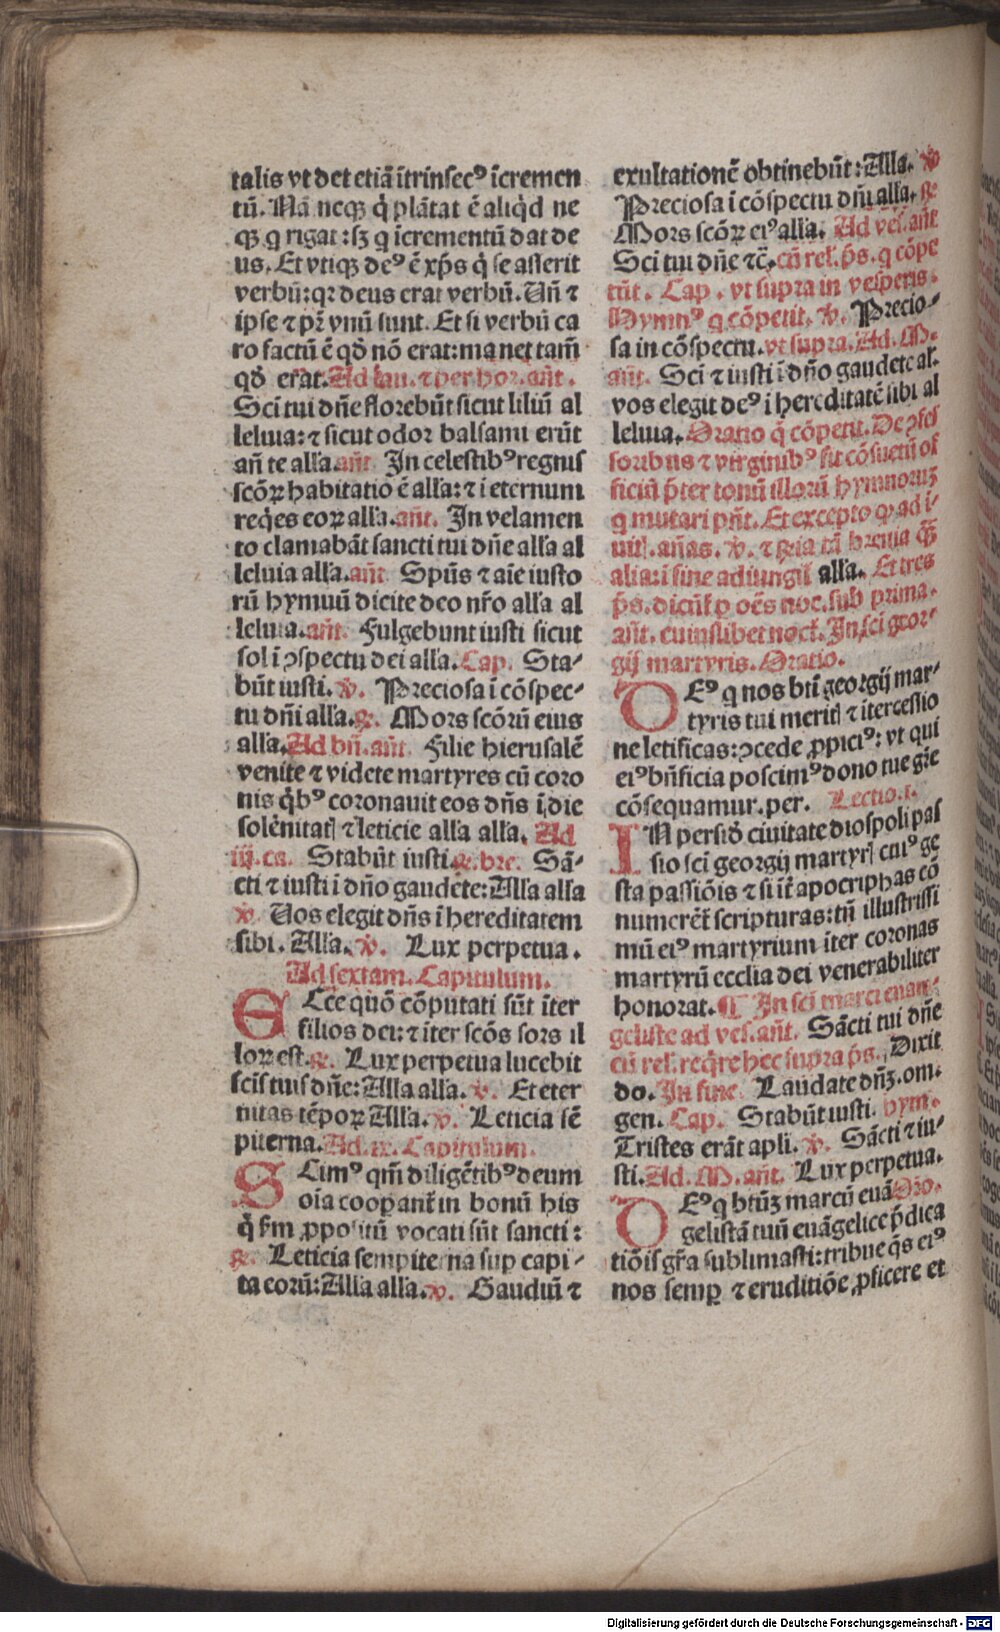 talis vt det etiã ĩtrinsecꝰ ĩcremen
tũ. Nã neqꝫ q̇ plãtat ẽ aliq̇d ne
qꝫ q rigat: sꝫ q ĩcrementũ dat de
us. Et vtiqꝫ deꝰ ẽ xp̃s q̇ se asserit
verbũ: qꝛ deus erat verbũ. Uñ ⁊
ipse ⁊ pr̃ vnũ sunt. Et si verbũ ca
ro factũ ẽ qd̕ nõ erat: manet tam̃
qd̕ erat. Ad lau. ⁊ per hor. añt.
Scĩ tui dñe florebũt sicut liliũ al
leluia: ⁊ sicut odor balsami erũt
añ te alľa. añt. In celestibꝰ regnis
scõꝝ habitatio ẽ alľa: ⁊ i eternum
req̇es eoꝝ alľa. añt. In velamen
to clamabãt sancti tui dñe alľa al
leluia alľa. añt. Spũs ⁊ aĩe iusto
rũ hymnũ dicite deo nr̃o alľa al
leluia. añt. Fulgebunt iusti sicut
sol i ꝯspectu dei alľa. Cap. Sta-
bũt iusti. ℣. Preciosa i cõspec-
tu dñi alľa. ℟. Mors scõrũ eius
alľa. Ad bñ. añt. Filie hierusalẽ
venite ⁊ videte martyres cũ coro
nis q̇bꝰ coronauit eos dñs i die
solẽnitatꝭ ⁊ leticie alľa alľa. Ad
iij. ca. Stabũt iusti. ℟. bre. Sã-
cti ⁊ iusti i dño gaudete: Alľa alľa
℣. Uos elegit dñs i hereditatem
sibi. Alľa. ℣. Lux perpetua.
Ad sextam. Capitulum.
ECce quõ cõputati sũt iter
filios dei: ⁊ iter scõs sors il
loꝝ est. ℟. Lux perpetua lucebit
scis tuis dñe: Alľa alľa. ℣. Et eter
nitas tẽpoꝝ Alľa. ℣. Leticia sẽ
piterna. Ad. ix. Capitulum.
SCimꝰ qm̃ diligẽtibꝰ deum
oĩa coopant̃ in bonũ his
q̇ ẜm ꝓpositũ vocati sũt sancti:
℟. Leticia sempiterna sup capi-
ta eorũ: Alľa alľa. ℣. Gaudiũ ⁊
exultationẽ obtinebũt: Alľa. ℣
Preciosa i cõspectu dñi alľa. ℟.
Mors scõꝝ eiꝰ alľa. Ad ves. añt
Scĩ tui dñe ⁊c̃. cũ rel. p̃s. q cõpe
tũt. Cap. vt supra in vesperis.
Hymnꝰ q cõpetit. ℣. Precio-
sa in cõspectu. vt supra. Ad. M.
añt. Scĩ ⁊ iusti i dño gaudete al.
vos elegit deꝰ i hereditatẽ sibi al
leluia. Oratio q̇ cõpetit. De ꝯfes
soribus ⁊ virginibꝰ fit cõsuetũ of
ficiũ p̃ter tonũ illorũ hymnoruꝫ
q mutari pñt. Et excepto ꝙ ad i-
uit. añas. ℣. ⁊ ℟ria tã breuia q̃ꝫ
alia: i fine adiungit̃ alľa. Et tres
p̃s. dicũt̃ ꝑ oẽs noc. sub prima
añt. cuiuslibet noct. In sci geor-
gij martyris. Oratio.
DEꝰ q nos bti georgij mar-
tyris tui meritꝭ ⁊ itercessio
ne letificas: ꝯcede ꝓpiciꝰ: vt qui
eiꝰ bñficia poscimꝰ dono tue gr̃e
cõsequamur. per. Lectio. i.
IN persid̕ ciuitate diospoli pas
sio sci georgij martyrꝭ cuiꝰ ge
sta passiõis ⁊ si iť apocriphas cõ
numerẽt̃ scripturas: tñ illustrissi
mũ eiꝰ martyrium iter coronas
martyrũ ecclia dei venerabiliter
honorat. ¶ In sci marci euan-
geliste ad ves. añt. Sãcti tui dñe
cũ rel. req̇re hec supra p̃s. Dixit
do. In fine. Laudate dñꝫ. om.
gen. Cap. Stabũt iusti. hym.
Tristes erãt apli. ℣. Sãcti ⁊ iu-
sti. Ad. M. añt. Lux perpetua.
DEꝰ q btũꝫ marcũ euã Oro.
gelistã tuũ euãgelice p̃dica
tiõis gr̃a sublimasti: tribue q̃s eiꝰ
nos semꝑ ⁊ eruditiõe ꝓficere et
Digitalisierung gefördert durch die Deutsche Forschungsgemeinschaft - DFG